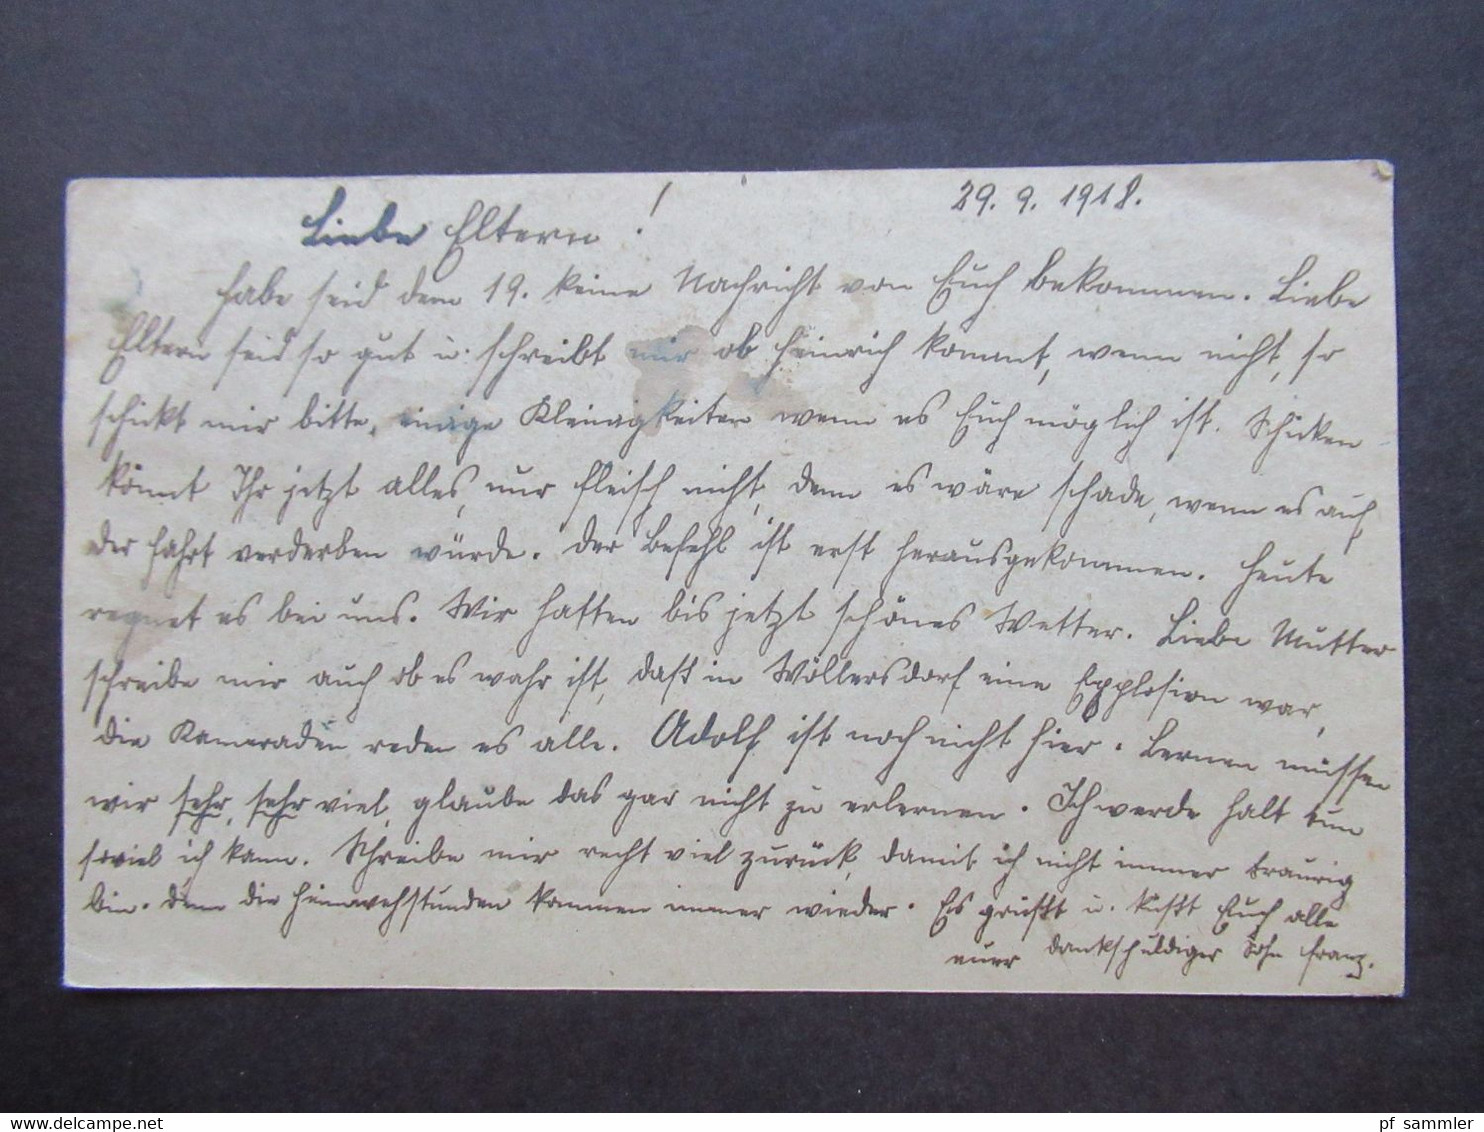 Liebe Eltern!
29. 9. 1918.
Habe seid dem 19. keine Nachricht von Euch bekommen. Liebe
Eltern seid so gut u. schreibt mir ob Heinrich kommt, wenn nicht, so
schickt mir bitte, einige Kleinigkeiten wenn es Euch möglich ist. Schicken
könnt Ihr jetzt alles, nur Fleisch nicht, denn es wäre schade, wenn es auf
der Fahrt verderben würde. Der Befehl ist erst herausgekommen. Heute
regnet es bei uns. Wir hatten bis jetzt schönes Wetter. Liebe Mutter
schreibe mir auch ob es wahr ist, daß in Wöllersdorf eine Explosion war,
die Kameraden reden es alle. Adolf ist noch nicht hier. Lernen müssen
wir sehr, sehr viel, glaube das gar nicht zu erlernen. Ich werde halt tun
soviel ich kann. Schreibe mir recht viel zurück, damit ich nicht immer traurig
bin. Denn die Heimwehstunden kommen immer wieder. Es grüßt u. küßt Euch alle
euer dankschuldiger Sohn Franz.
pf sammler
delcampe.net